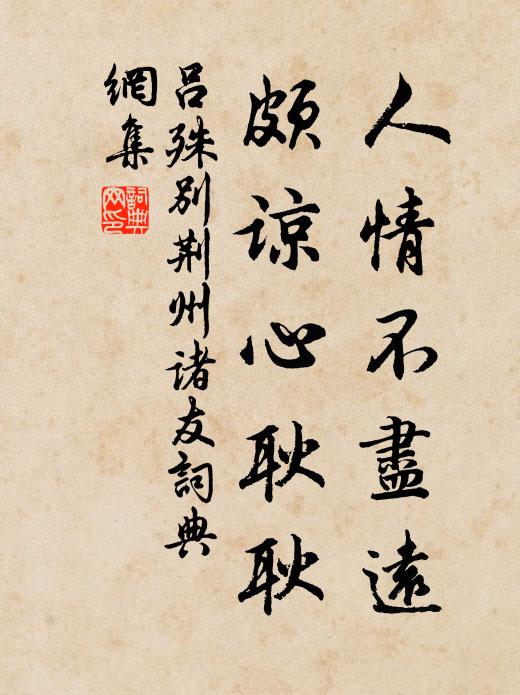 人情不盡遠
頗諒心耿耿
呂殊別荆州諸友詞典
網集
詞典網印